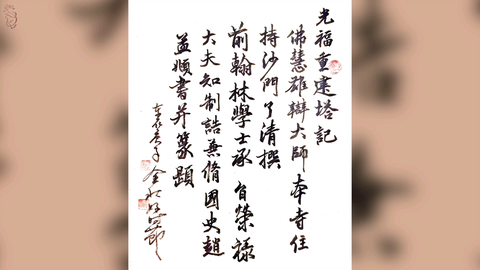 光福重建塔記
佛慧雄辯大師 本寺住
持沙門了清撰
前翰林學士承 旨榮祿
大夫知制誥兼脩國史趙
孟頫書并篆題